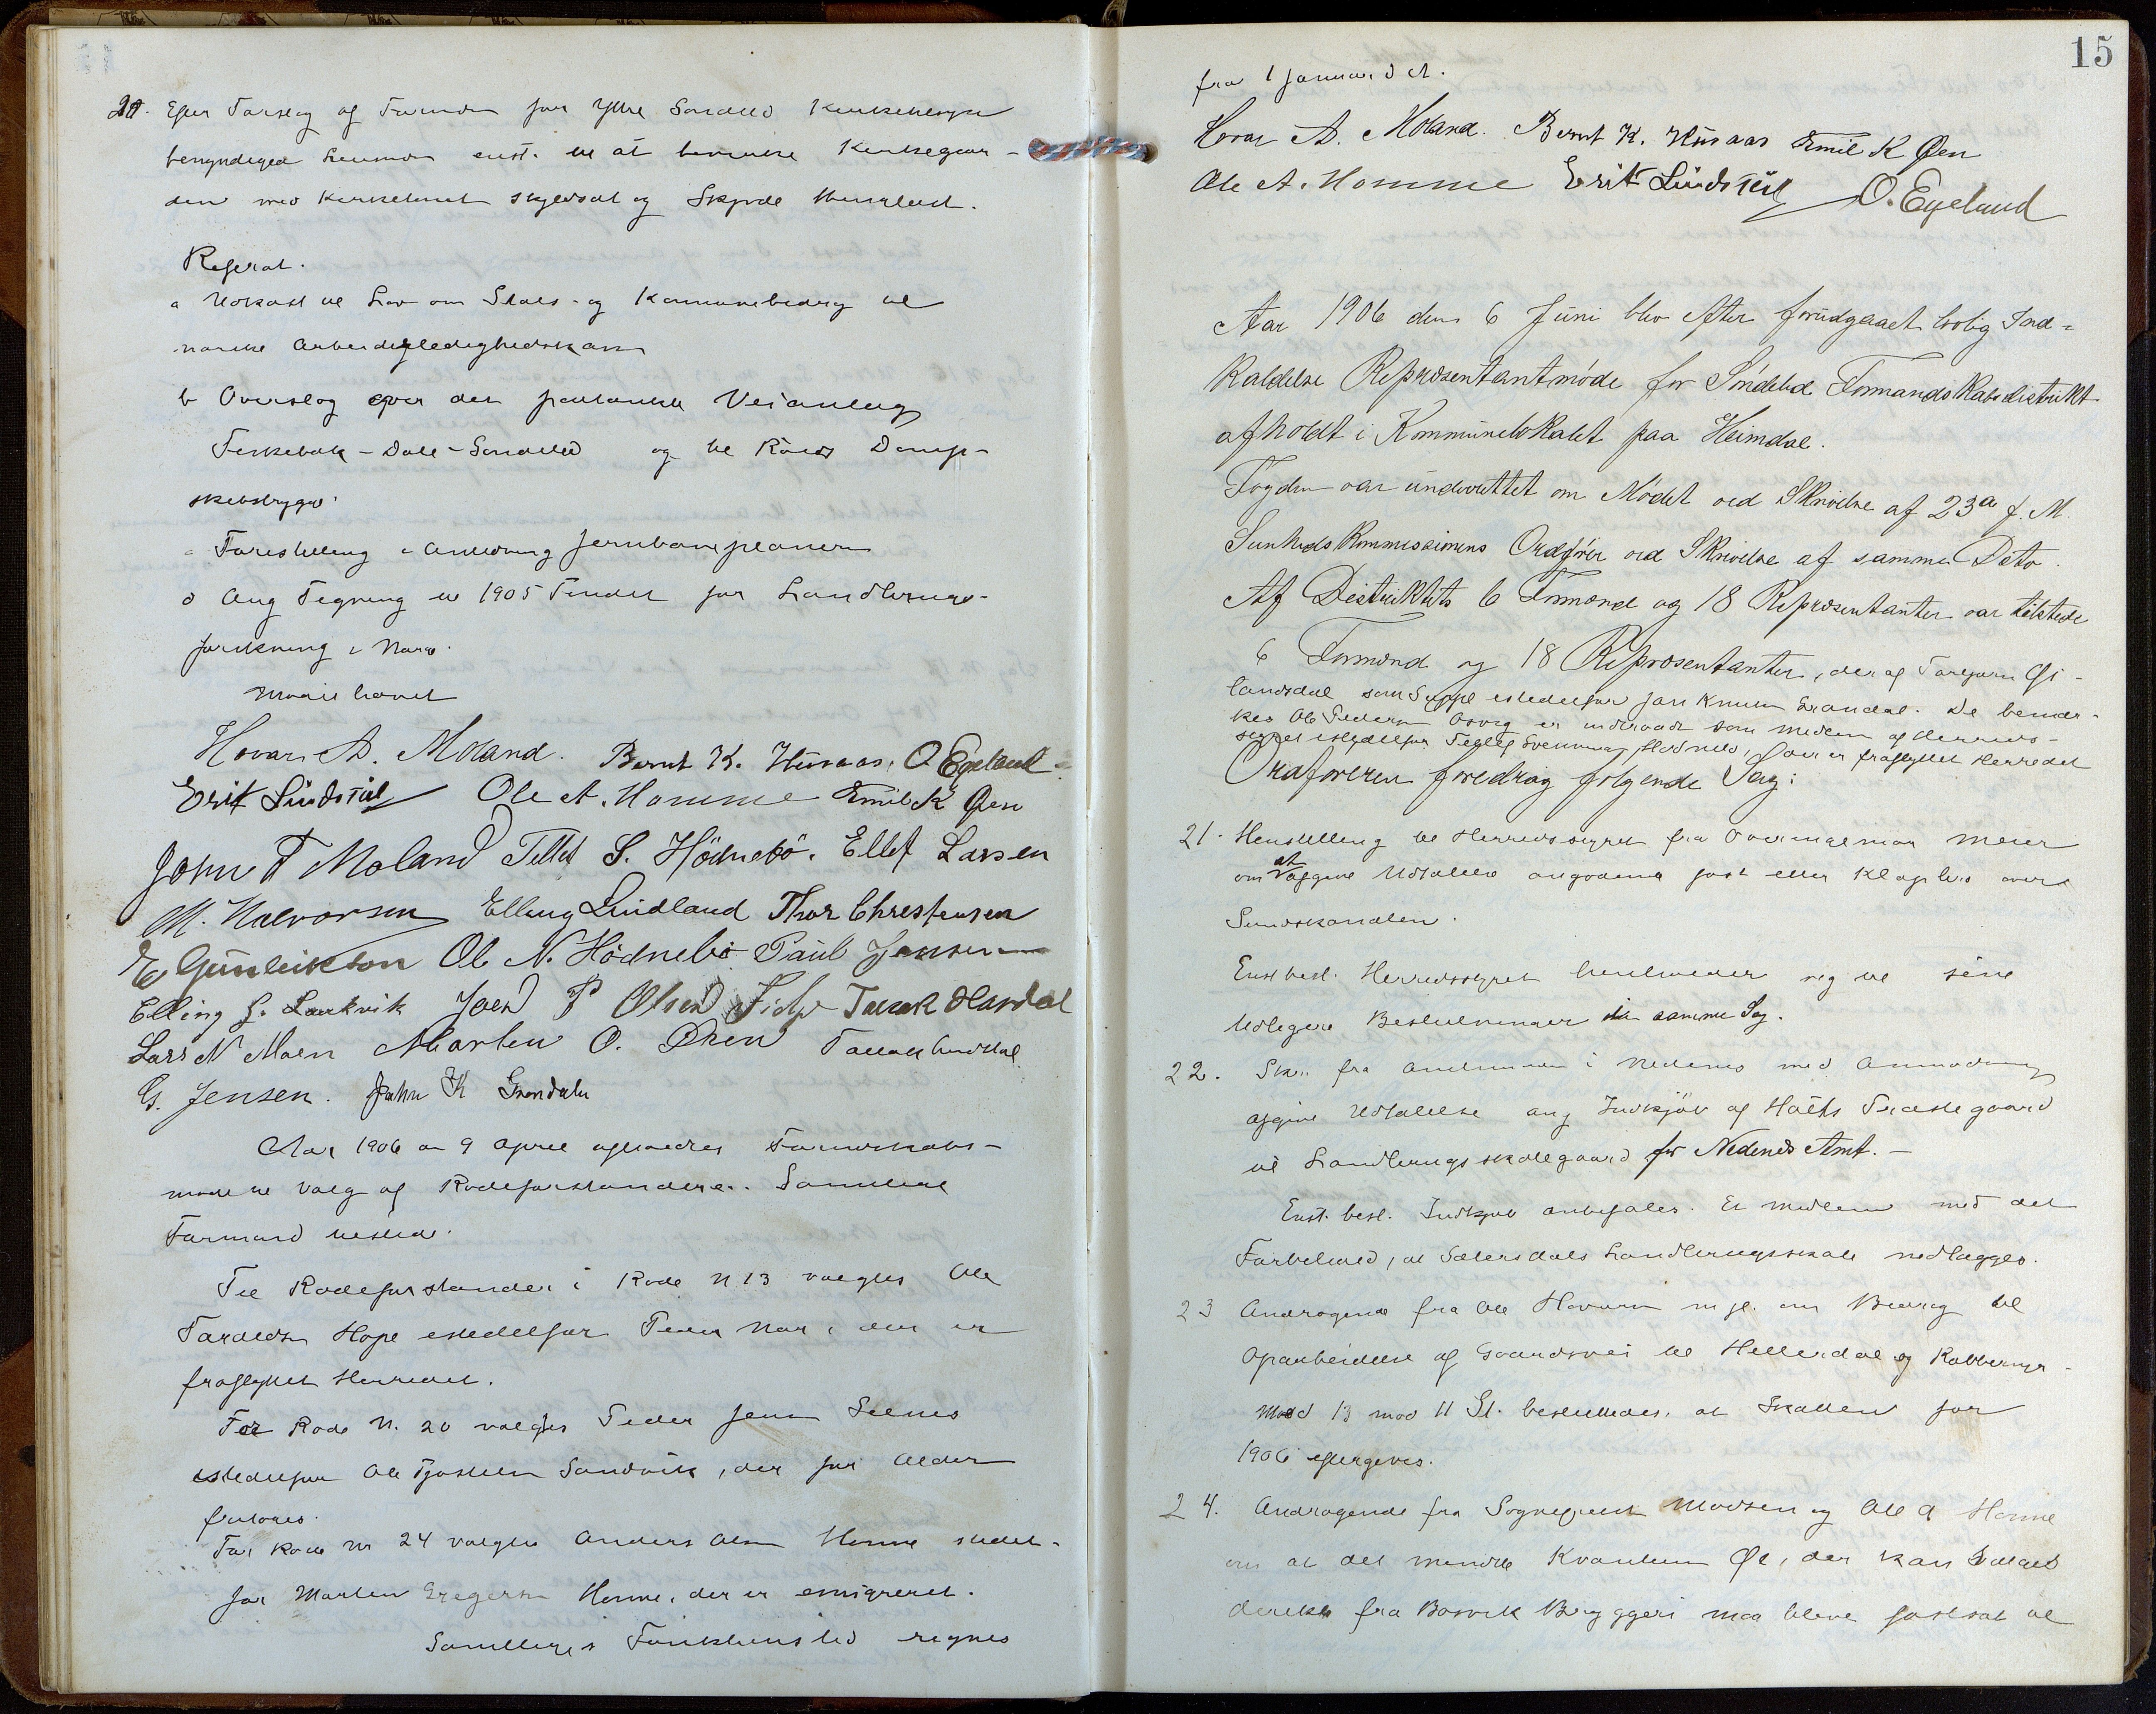 20. Efter Forslag af Formanden for Ytre Søndeled Kirketilsyn
bemyndiges Lensmanden enst. til at Kirkegaar-
den med Kirketomt skyldsat og Skjøde
Referat.
a Udkast til Lov om Stats- og Kommunebidrag til
norske Arbeidsledighedskasser
b Overslag over den paatænkte Veianlæg
Fiskebæk - Dale - Søndeled og til Røeds Damp-
skibsbrygge
c Forestilling i Anledning Jernbaneplanen
d Ang Tegning til 1905 Fondet for Landbrugs-
forskning i Norge.
Mødet hævet
Hovar A. Moland. Bernt K. Husaas. O Egeland
Erik Lindstøl Ole A. Homme Emil K Øen
John T Moland Tellef S. Hödnebö. Ellef Larsen
M. Halvorsen Elling Lindland Thor Christensen
E Gunleikson Ole N. Hödnebö Paul Jensen
Elling J. Lærkvik Joen P Olsen Tarak Havdal
Lars N Moen Marten O. Øken
G. Jensen. John K Grøndalen
Aar 1906 den 9 April afholdtes Formandskabs-
møde til Valg af Rodeforstandere. Samtlige
Formænd tilstede.
Til Rodeforstander i Rode N 13 valgtes Ole
Taraldsen Hope istedetfor Peder Nor, der er
fraflyttet Herredet.
For Rode N. 20 valgtes Peder Jens
istedetfor Ole Sandvik, der for Alder
fritages.
For Rode Nr 24 valgtes Anders Olsen Homme istedet-
for Morten Gregersen Homme, der er emigreret.
Samtliges Funktionstid regnes
15
fra 1 Januar d A.
Hovar A. Moland. Bernt K. Husaas Emil K Øen
Ole A. Homme Erik Lindstøl O. Egeland
Aar 1906 den 6 Juni blev efter forudgaaet lovlig Ind-
kaldelse Repræsentantmøde for Söndeled Formandskabsdistrikt
afholdt i Kommunelokalet paa Heimdal.
Fogden var underrettet om Mödet ved Skrivelse af 23de f. M.
Sunhedskommissionens Ordförer ved Skrivelse af samme Dato.
Af Distriktets 6 Formænd og 18 Repræsentanter var tilstede
6 Formænd og 18 Repræsentanter, deraf Torbjørn Gi-
landsdal som Suppl istedetfor John Knutsen Grøndal. De bemær-
kes Ole Pedersen Osvag er indtraadt som Medlem af Herreds-
styret istedetfor Tellef Svenning Hødnebø, der er fraflyttet Herredet
Ordföreren foredrag følgende Sag:
21. Henstilling til Herredsstyret fra Overingeniør Meier
om at afgive Udtalelse angaaende fast eller Klapbro over
Sundskanalen.
Enst besl. Herredsstyret henholder sig til sine
tidligere Beslutninger i samme Sag.
22. Skr. fra Amtmanden i Nedenes med Anmodning
afgive Udtalelse ang Indkjøb af Holts Præstegaard
til Landbrugsskolegaard for Nedenes Amt. -
Enst. besl. Indkjøb anbefales. Et Medlem med det
Forbehold, at Sætersdals Landbrugsskole nedlægges.
23 Andragende fra Ole Hovorsen m fl. om Bidrag til
Oparbeidelse af Gaardsvei til Hellerdal og Kobbermyr-
Mod 13 mod 11 St. besluttedes, at Skatten for
1906 eftergives.
24. Andragende fra Sogneprest Madsen og Ole A Homme
om at det mindste Kvantum Øl, der kan sælges
direkte fra Bosvik Bryggeri maa blive fastsat til